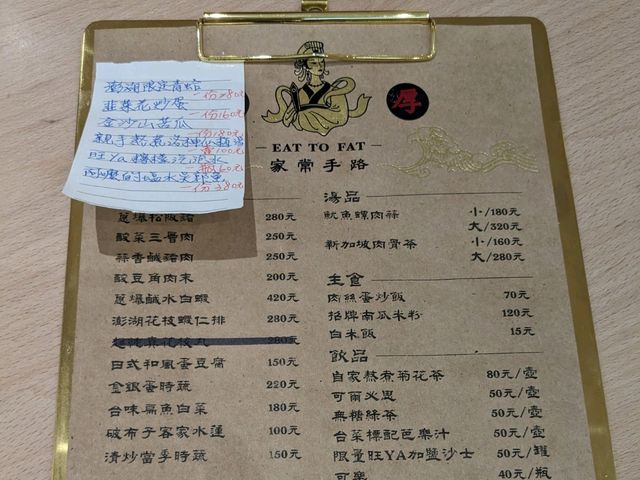 澎湖限定青蛤
一份280元
韭菜花炒蛋
一份160元
金沙山苦瓜
一份180元
壹100元
旺Ya檸檬汽泡水
瓶60元
一份380元
厚
EAT TO FAT
家常手路
蔥爆松阪豬 280元
酸菜三層肉 250元
蒜香鹹豬肉 250元
酸豆角肉末 200元
蔥爆鹹水白蝦 420元
澎湖花枝蝦仁排 280元
280元
日式和風蛋豆腐 150元
金銀蛋時蔬 220元
台味扁魚白菜 180元
破布子客家水蓮 100元
清炒當季時蔬 150元
湯品
魷魚螺肉蒜 小/180元
大/320元
新加坡肉骨茶 小/160元
大/280元
主食
肉絲蛋炒飯 70元
招牌南瓜米粉 120元
白米飯 15元
飲品
自家熬煮菊花茶 80元/壺
可爾必思 50元/壺
無糖綠茶 50元/壺
台菜標記芭樂汁 50元/壺
限量旺YA加鹽沙士 50元/罐
可樂 40元/瓶